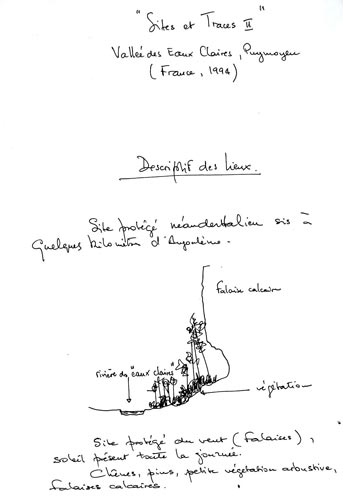 "Sites et Traces II"
Vallée des Eaux Claires, Puymoyen
(France, 1994)
Descriptif des lieux.
Site protégé néanderthalien sis à
Quelques kilomètres d'Angoulême.
falaise calcaire
rivière des "eaux claires"
végétation
Site protégé du vent (falaises),
soleil présent toute la journée.
Chênes, pins, petite végétation arbustive,
falaises calcaires.